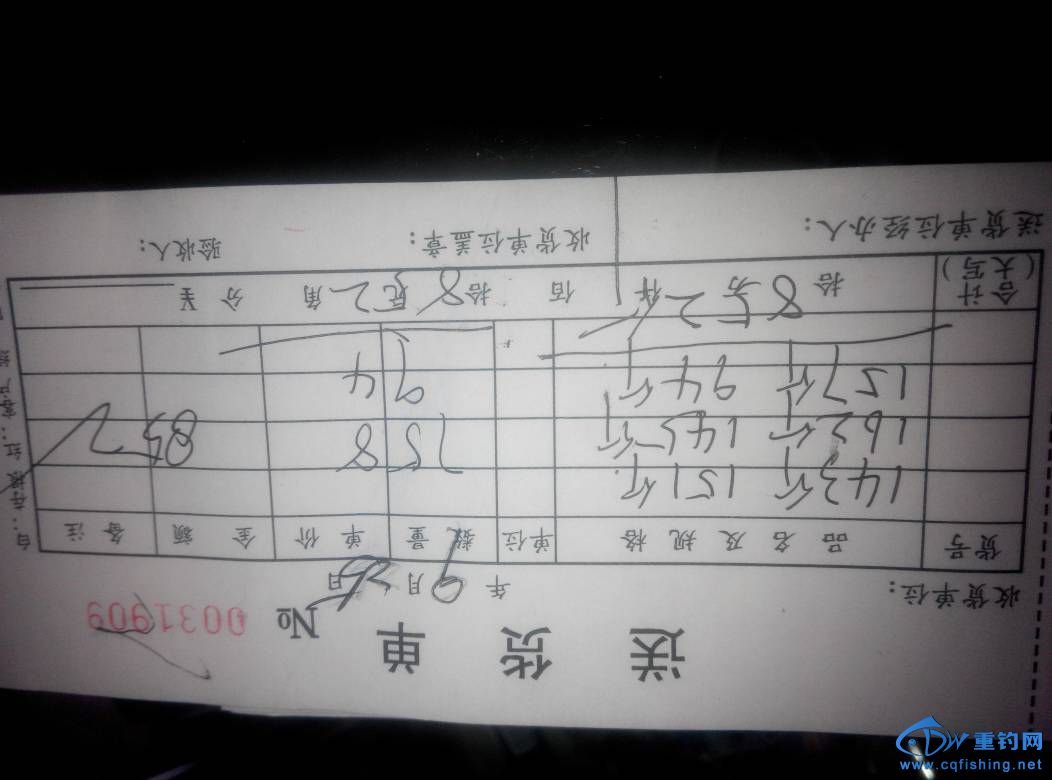 送货单 № 0031909
收货单位: 年 9 月 日
货号 品名及规格 单位 数量 单价 金额 备注
143斤 151斤
162斤 145斤 758 852
157斤 94斤 94
合计(大写) 拾 佰 拾 角 分 ¥
送货单位经办人: 收货单位盖章: 验收人:
白:存根 红:客户
重钓网
www.cqfishing.net